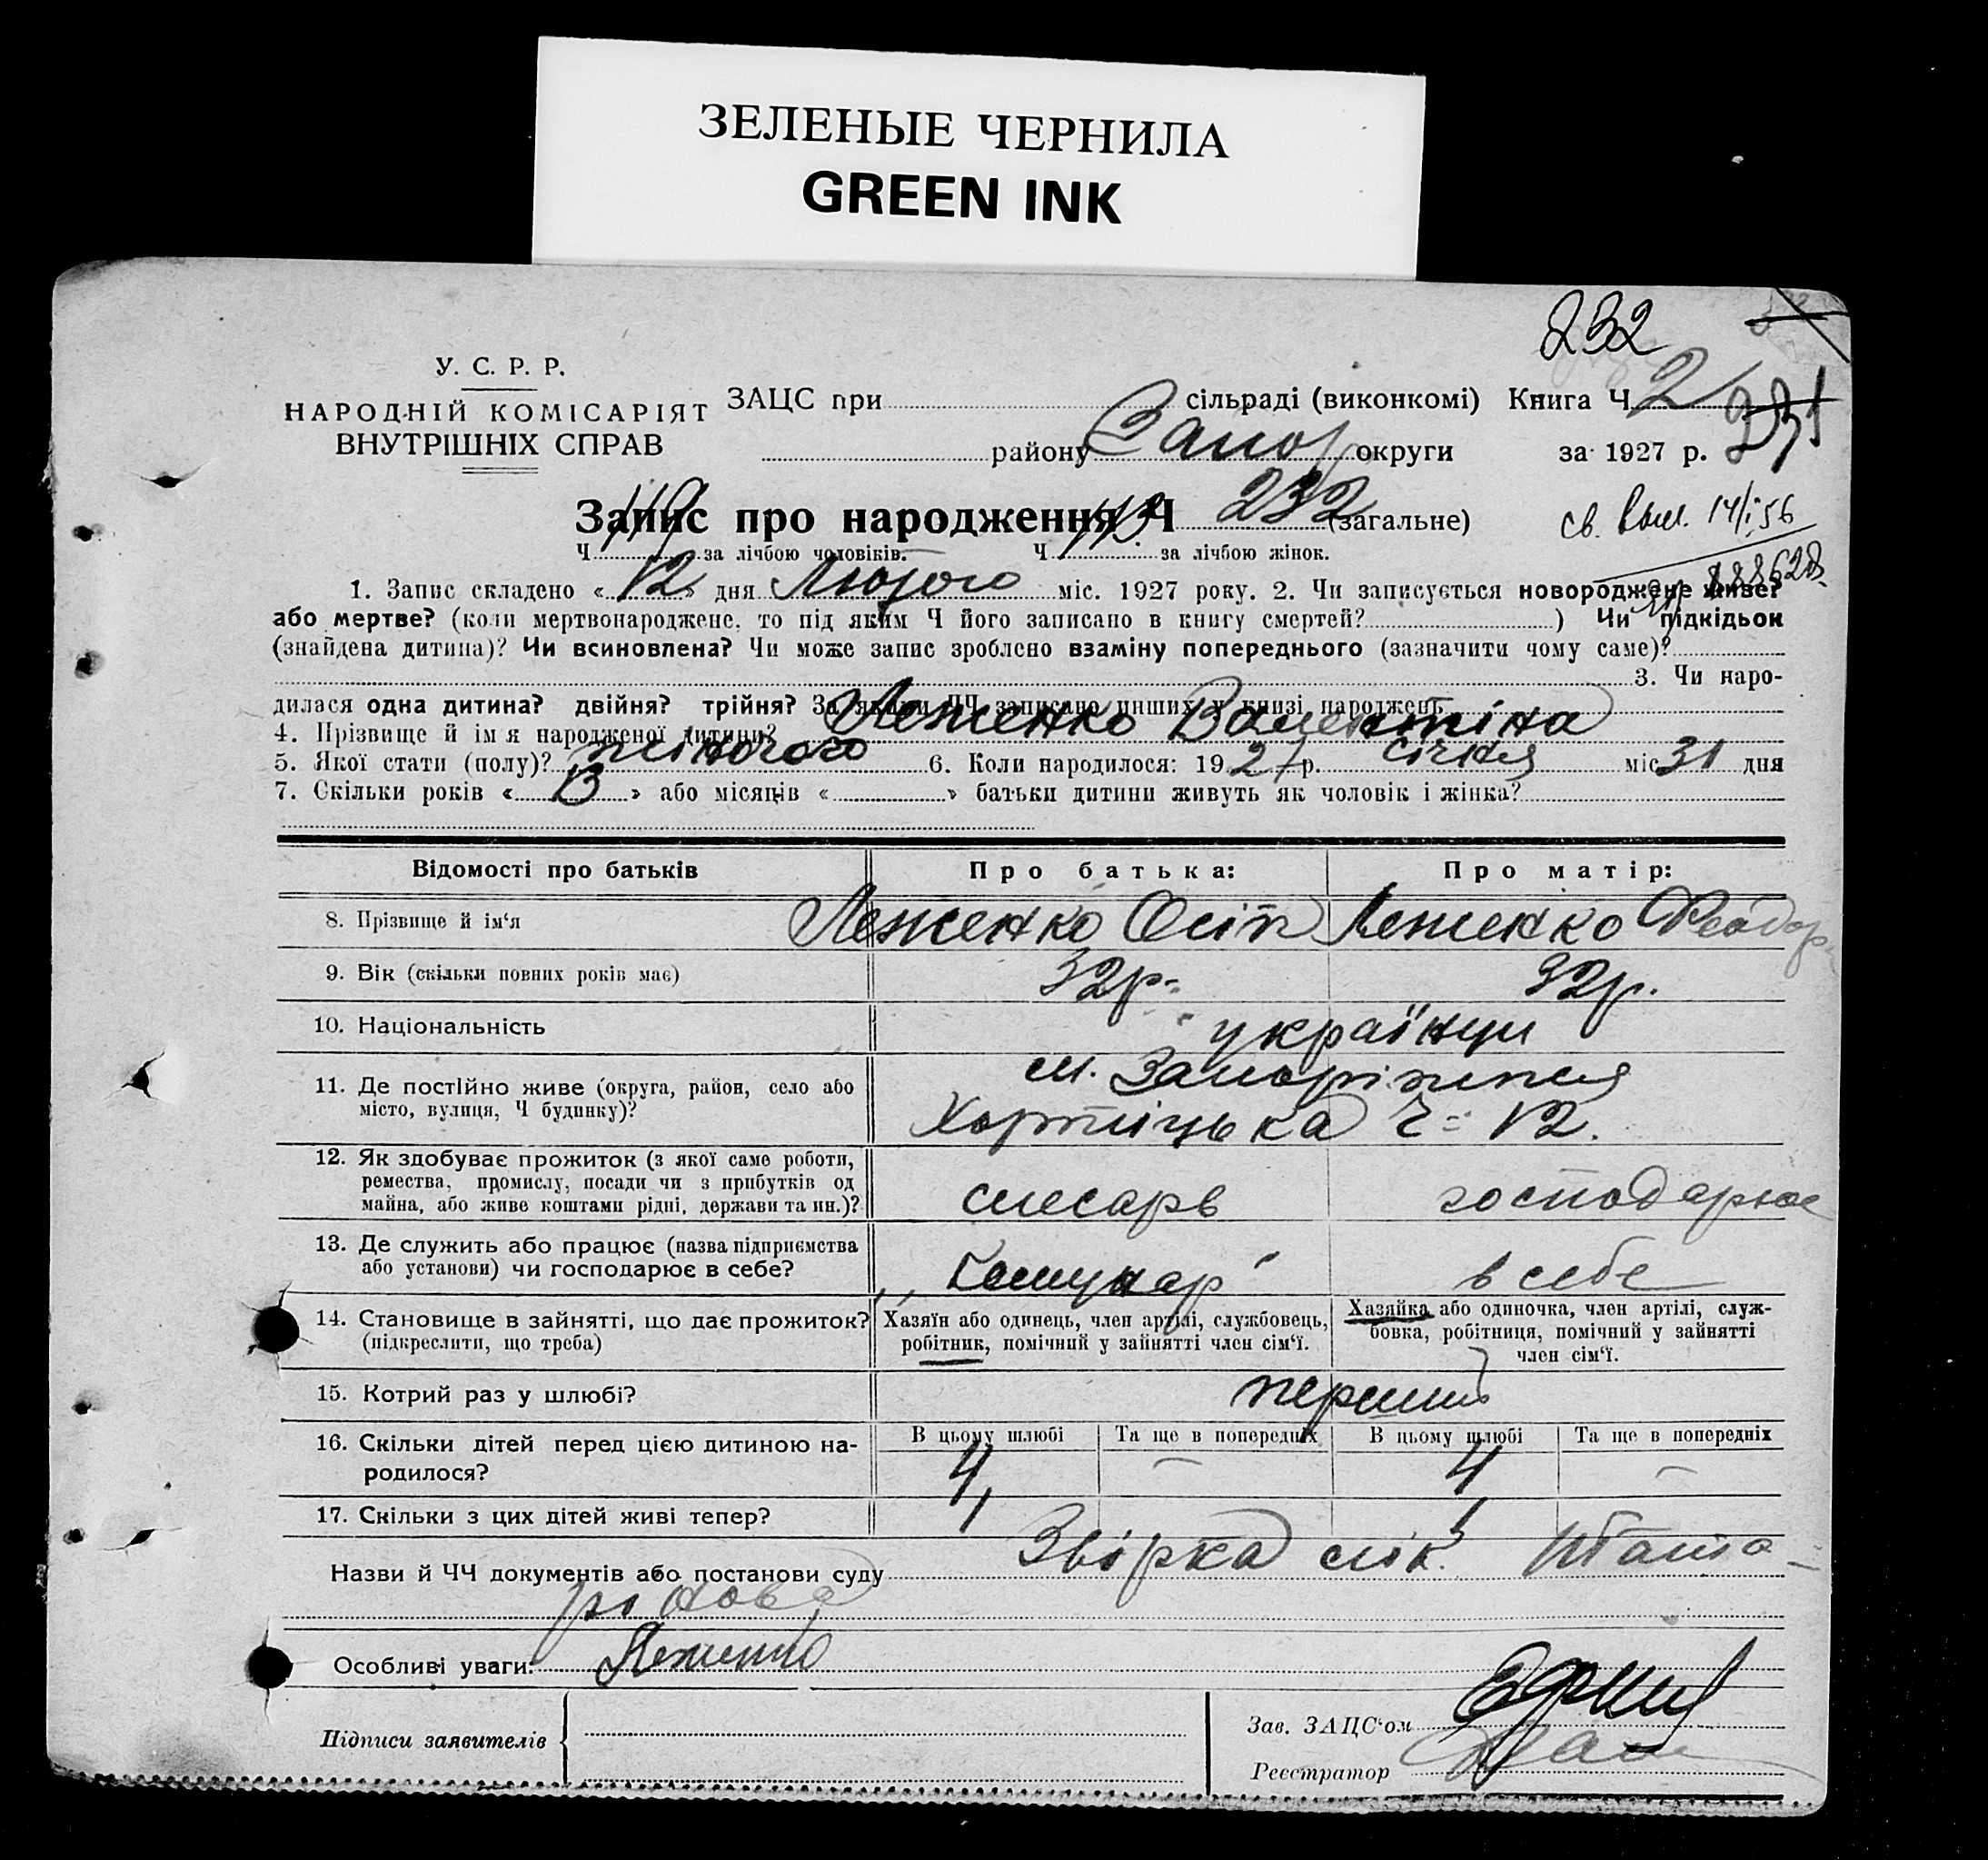 ЗЕЛЕНЫЕ ЧЕРНИЛА
GREEN INK
232
У. С. Р. Р.
НАРОДНІЙ КОМІСАРІЯТ
ВНУТРІШНІХ СПРАВ
ЗАЦС при сільраді (виконкомі) Книга Ч 2
району Запор округи за 1927 р. 231
Запис про народження Ч 232 (загальне)
Ч 119 за лічбою чоловіків. Ч 113 за лічбою жінок.
св. 14/I 56
1. Запис складено « 12 » дня Лютого міс. 1927 року. 2. Чи записується новороджене живе?
або мертве? (коли мертвонароджене, то під яким Ч його записано в книгу смертей? ) Чи підкідьок
(знайдена дитина)? Чи всиновлена? Чи може запис зроблено взаміну попереднього (зазначити чому саме)?
3. Чи наро-
дилася одна дитина? двійня? трійня? За якими ЧЧ записано инших у книзі народжень
4. Прізвище й ім'я народженої дитини? Леженко Валентіна
5. Якої стати (полу)? жіночого 6. Коли народилося: 1927 р. січня міс 31 дня
7. Скільки років « 13 » або місяців « » батьки дитини живуть як чоловік і жінка?
Відомості про батьків Про батька: Про матір:
8. Прізвище й ім'я Леженко Осіп Леженко Феодор
9. Вік (скільки повних років має) 32р. 32р.
10. Національність українци
11. Де постійно живе (округа, район, село або
місто, вулиця, Ч будинку)? м. Запоріжжя
Хортіцька Ч= 12.
12. Як здобуває прожиток (з якої саме роботи,
ремества, промислу, посади чи з прибутків од
майна, або живе коштами рідні, держави та ин.)? слесарь господарює
13. Де служить або працює (назва підприємства
або установи) чи господарює в себе? „Комунар" в себе
14. Становище в зайнятті, що дає прожиток?
(підкреслити, що треба)
Хазяїн або одинець, член артілі, службовець,
робітник, помічний у зайнятті член сім'ї.
Хазяйка або одиночка, член артілі, служ-
бовка, робітниця, помічний у зайнятті
член сім'ї.
15. Котрий раз у шлюбі? перший
16. Скільки дітей перед цією дитиною на-
родилося?
В цьому шлюбі Та ще в попередніх В цьому шлюбі Та ще в попередніх
4 — 4 —
17. Скільки з цих дітей живі тепер? 1 1
Назви й ЧЧ документів або постанови суду Звірка лік.
Особливі уваги: Леженко
Підписи заявителів
Зав. ЗАЦС'ом
Реєстратор